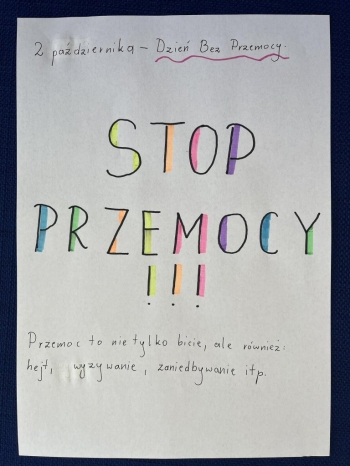 2 października - Dzień Bez Przemocy.
STOP
PRZEMOCY
!!!
Przemoc to nie tylko bicie, ale również:
hejt, wyzywanie, zaniedbywanie itp.